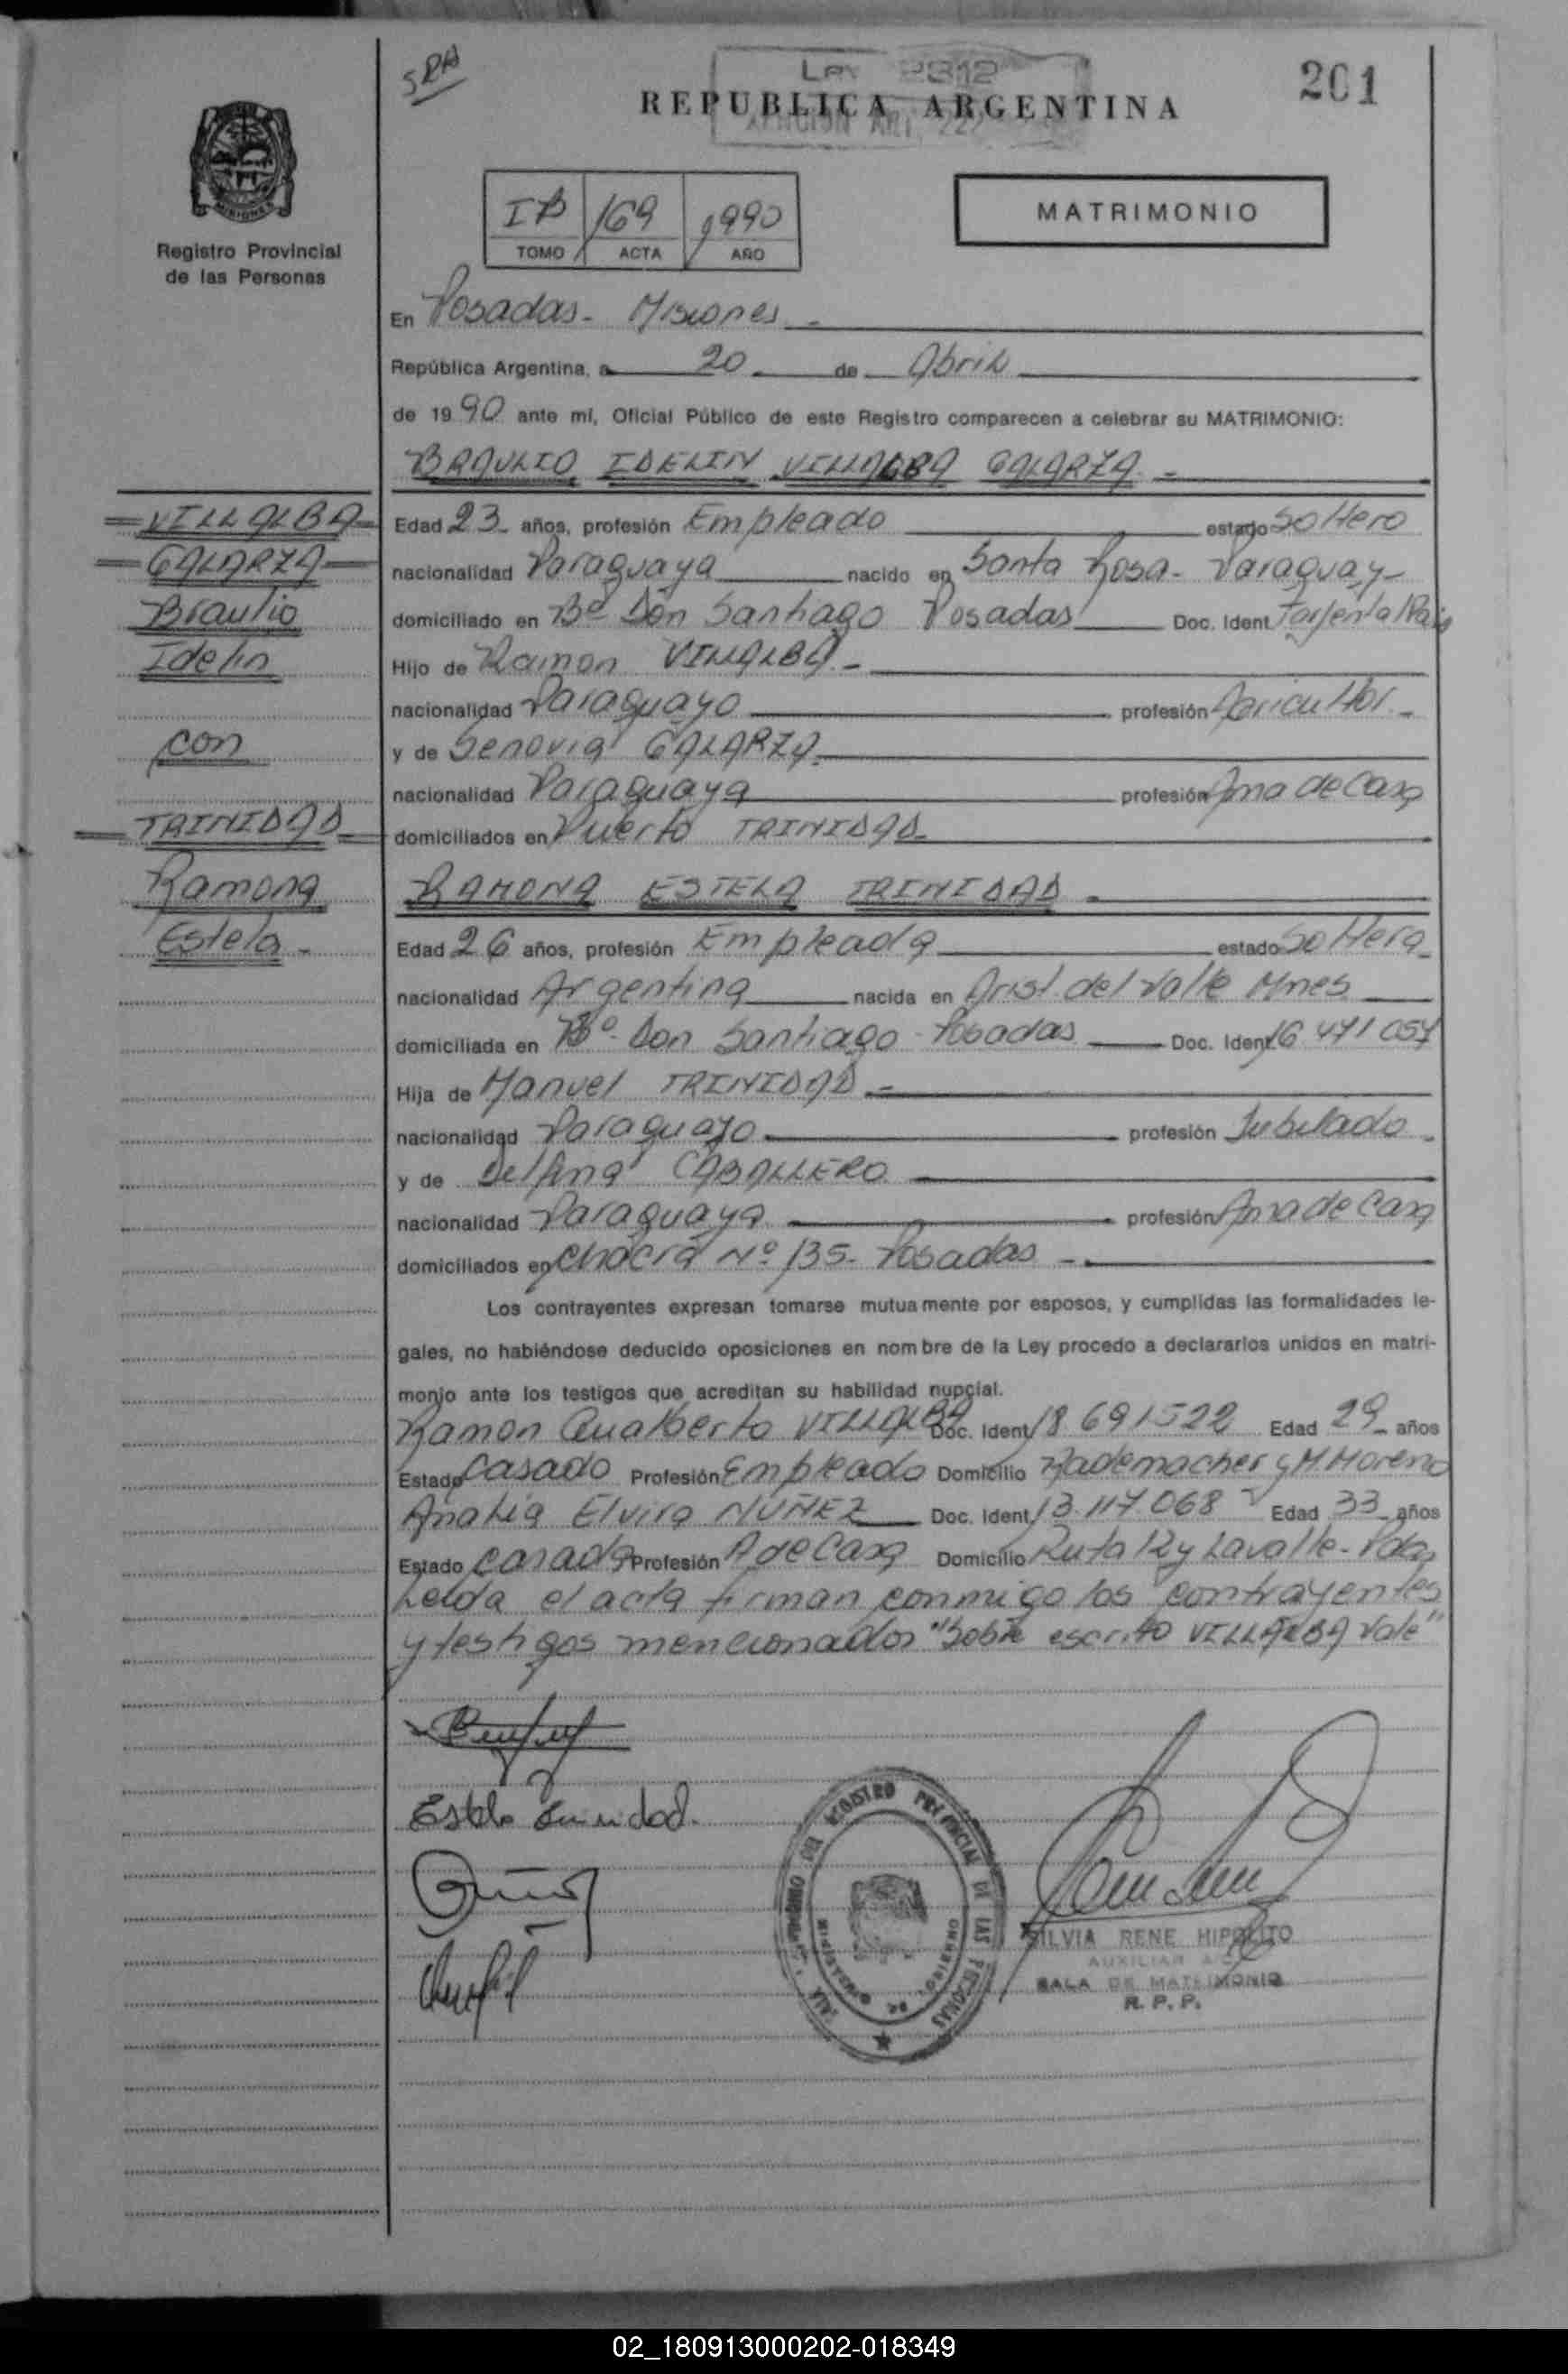 SRA
LEY 2312
REPUBLICA ARGENTINA
201
MISIONES
Registro Provincial
de las Personas
IB 169 1990
TOMO ACTA AÑO
MATRIMONIO
En Posadas - Misiones -
República Argentina, a 20 de Abril
de 1990 ante mí, Oficial Público de este Registro comparecen a celebrar su MATRIMONIO:
BRAULIO IDELIN VILLALBA GALARZA -
VILLALBA
GALARZA
Braulio
Idelin
con
TRINIDAD
Ramona
Estela -
Edad 23 años, profesión Empleado estado Soltero
nacionalidad Paraguaya nacido en Santa Rosa - Paraguay -
domiciliado en Bº Don Santiago Posadas Doc. Ident
Hijo de Ramon VILLALBA -
nacionalidad Paraguayo profesión Agricultor -
y de Senovia GALARZA
nacionalidad Paraguaya profesión Ama de Casa
domiciliados en Puerto TRINIDAD -
RAMONA ESTELA TRINIDAD -
Edad 26 años, profesión Empleada estado Soltera
nacionalidad Argentina nacida en Arist. del Valle Mnes
domiciliada en Bº Don Santiago - Posadas Doc. Ident 16 471 057
Hija de Manuel TRINIDAD -
nacionalidad Paraguayo profesión Jubilado -
y de Delfina CABALLERO
nacionalidad Paraguaya profesión Ama de Casa
domiciliados en Chacra Nº 135 - Posadas -
Los contrayentes expresan tomarse mutuamente por esposos, y cumplidas las formalidades le-
gales, no habiéndose deducido oposiciones en nombre de la Ley procedo a declararlos unidos en matri-
monio ante los testigos que acreditan su habilidad nupcial.
Ramon Gualberto VILLALBA Doc. Ident 18 691522 Edad 29 años
Estado Casado Profesión Empleado Domicilio Rademacher y M. Moreno
Analia Elvira NUÑEZ Doc. Ident. 13.117.068 Edad 33 años
Estado Casada Profesión A de Casa Domicilio Ruta 12 y Lavalle - Pdas
Leida el acta firman conmigo los contrayentes
y testigos mencionados "Sobre escrito VILLALBA Vale"
Estela Trinidad.
REGISTRO PROVINCIAL DE LAS PERSONAS
MINISTERIO DE GOBIERNO
SILVIA RENE HIPOLITO
AUXILIAR
SALA DE MATRIMONIO
R. P. P.
02_180913000202-018349